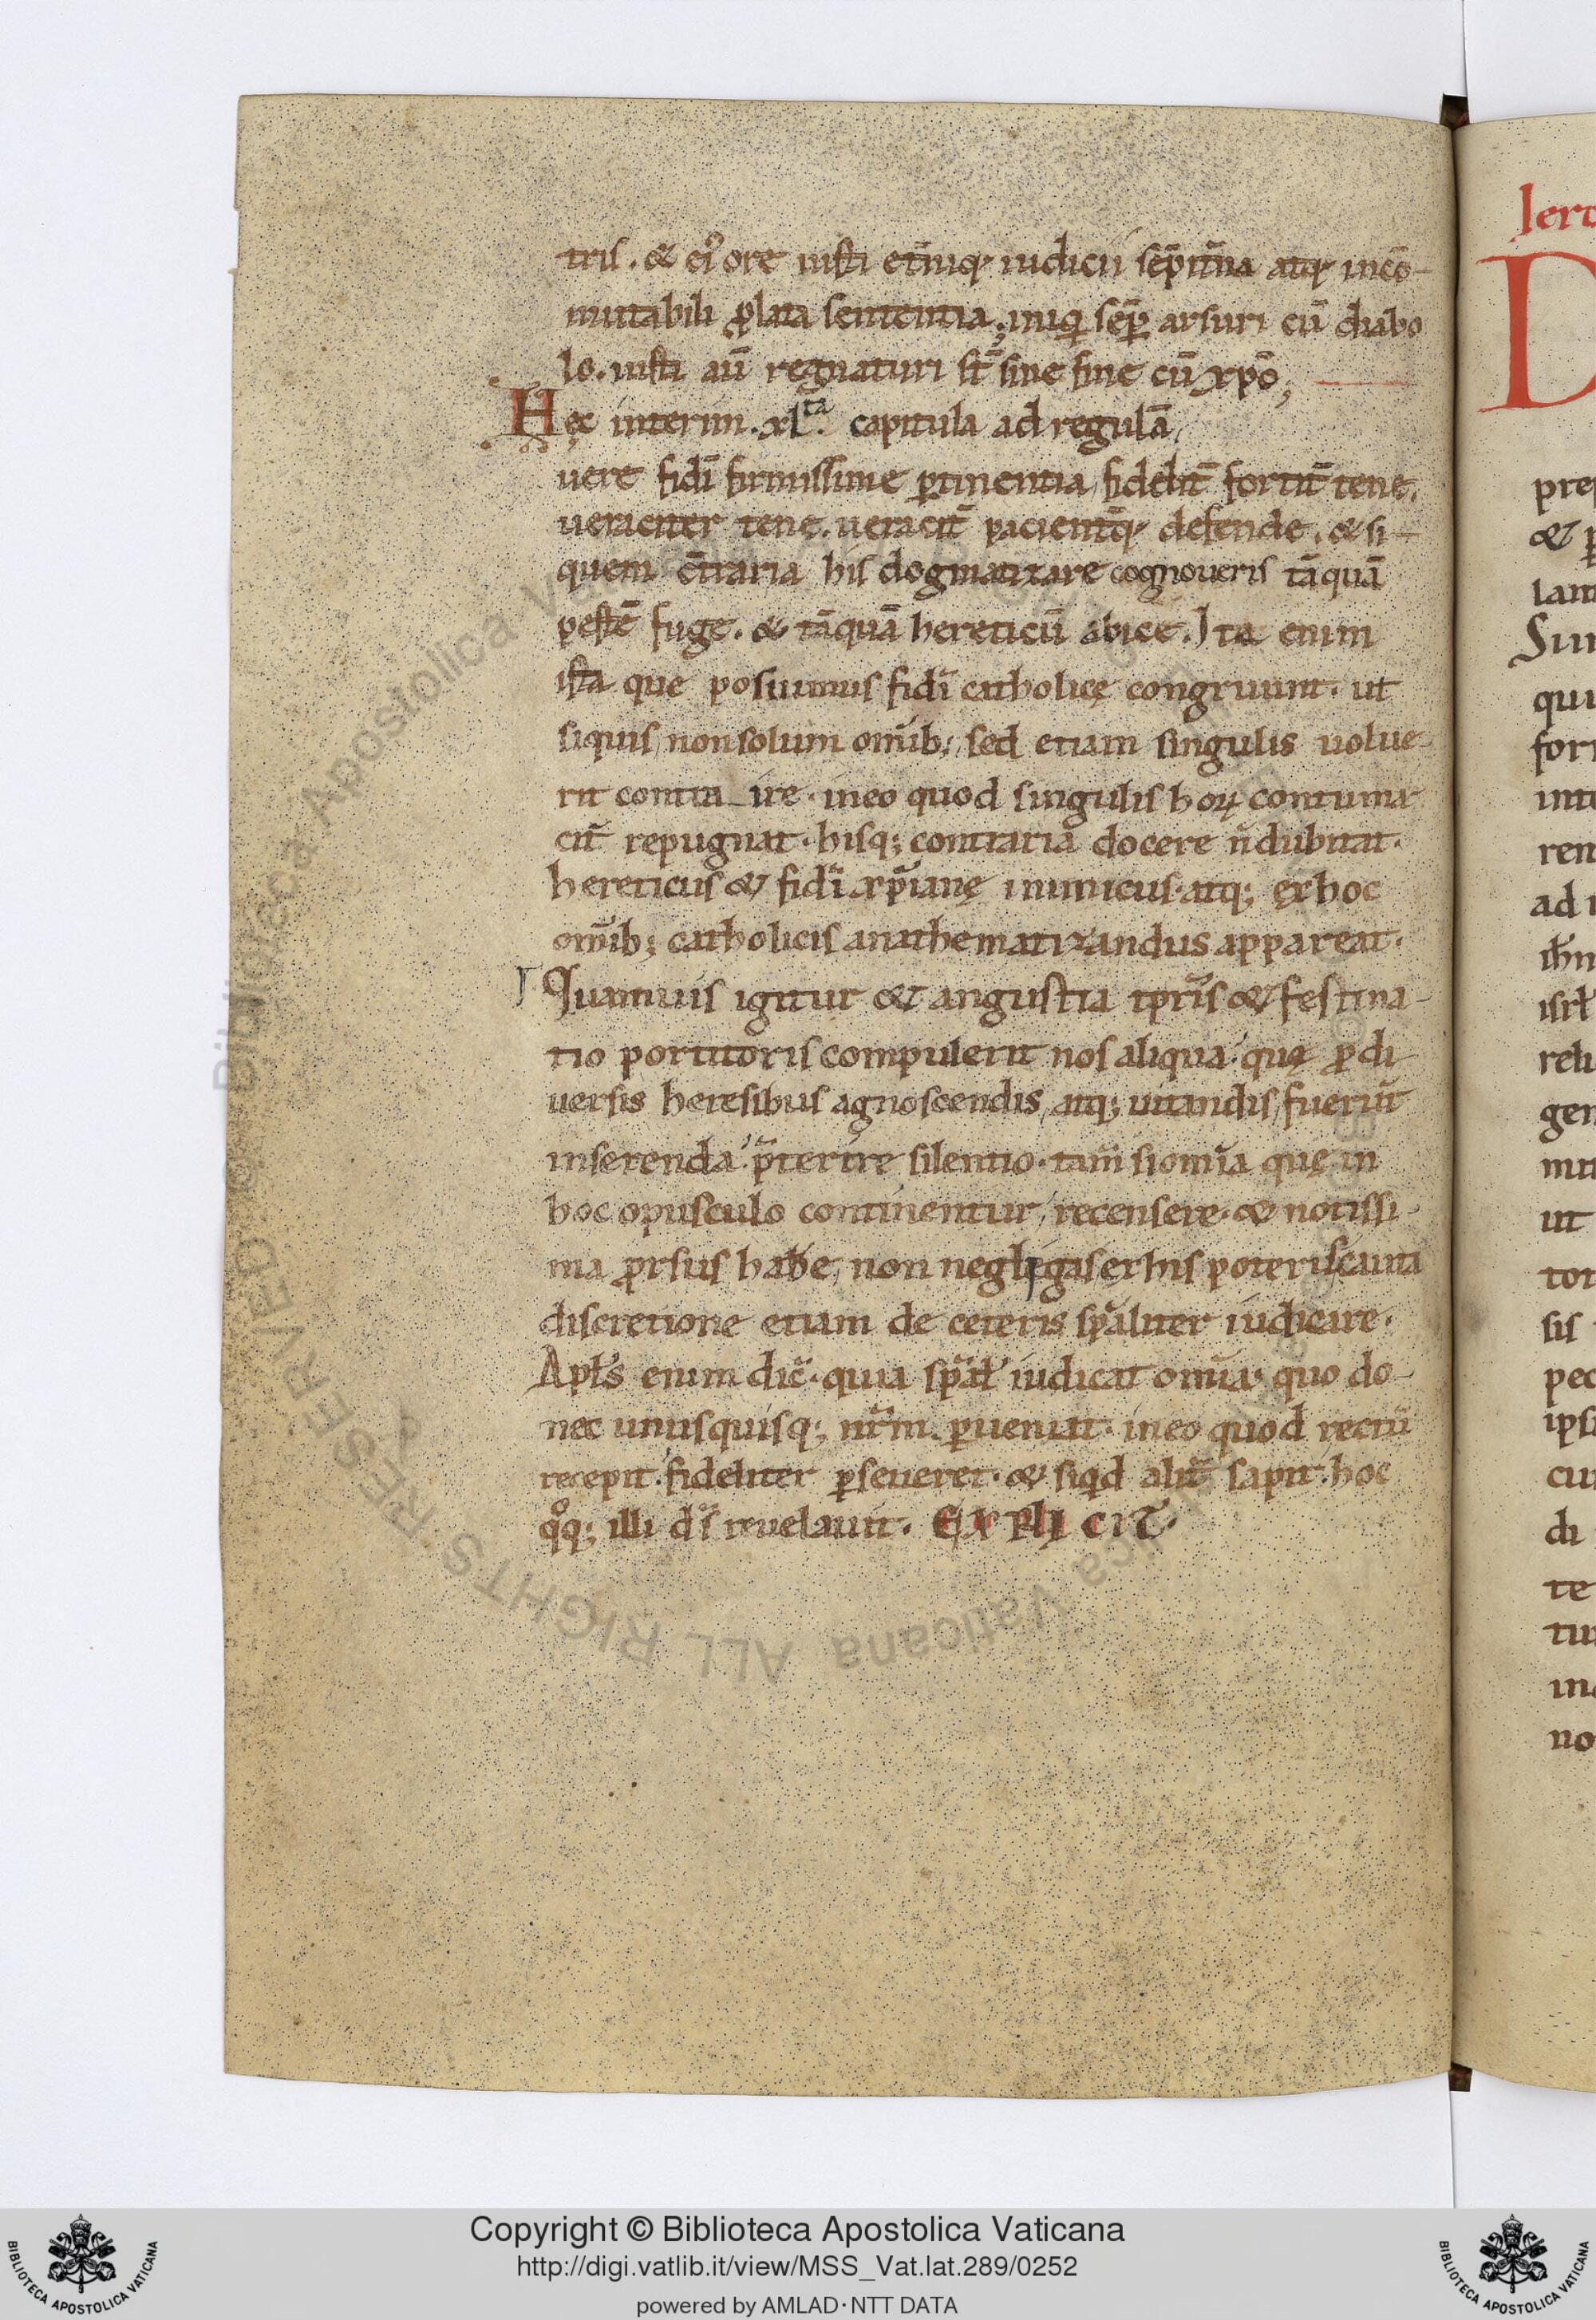 tris. & ei᾽ ore iusti et̄niq; iudicii sēpit̄na atq; incō-
mutabili ꝓlata sententia; iniqi sēꝑ arsuri cū diabo
lo. iusti aū regnaturi st̄ sine fine cū xp̄o;
Hęc interim. xl.ta capitula ad regulā
uere fidī firmissime ꝑtinentia, fidelit̄ fortit̄ tene.
ueraciter tene. ueracit̄ pacient̄q; defende. & si-
quem c̄traria his dogmatizare cognoueris tāquā
pestē fuge. & tāquā hereticū abice. Ita enim
ista que posuimus fidī catholicę congruunt. ut
siquis, non solum om̄ib; sed etiam singulis uolue-
rit contra ire. in eo quod singulis hoꝝ contuma
cit̄ repugnat. hisq; contraria docere n̄ dubitat.
hereticus & fidī xp̄ianę inimicus. atq; ęx hoc
om̄ib; catholicis anathematizandus appareat.
Quamuis igitur & angustia tp̄ris & festina-
tio portitoris compulerit nos aliqua que ꝓ di
uersis heresibus agnoscendis, atq; uitandis, fuerūt
inserenda p̄terire silentio. tam̄ si om̄ia quę in
hoc opusculo continentur, recensere. & notissi-
ma ꝓrsus habe, non negligas ex his poteris cuncta
discretione etiam de ceteris sp̄aliter iudicare.
Apłs enim dic̄. quia sp̄ał iudicat om̄ia. quo do-
nec unusquisq; nr̄m. ꝑueniat. in eo quod rectū
recepit. fideliter ꝑseueret. & siqd alit̄ sapit. hoc
qͦq; illi ds̄ reuelauit. EXPLICIT.
lert
D
pre
& p
lam
Sun
qui
for
int
ren
ad
ih̄n
isrł
reli
gen
mu
ut
tor
sis
pec
ips
cu
di
te
tu
ina
no
© Biblioteca Apostolica Vaticana ALL RIGHTS RESERVED
Copyright © Biblioteca Apostolica Vaticana
http://digi.vatlib.it/view/MSS_Vat.lat.289/0252
powered by AMLAD·NTT DATA
BIBLIOTECA APOSTOLICA VATICANA
BIBLIOTECA APOSTOLICA VATICANA